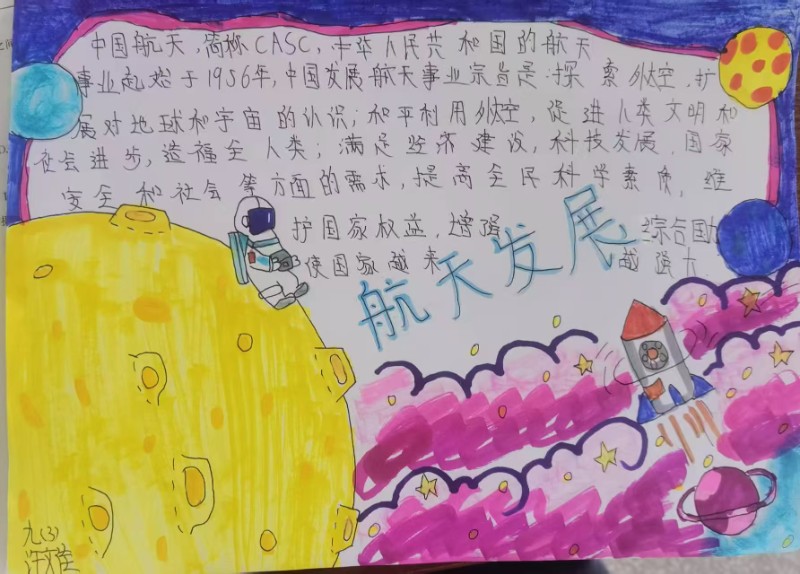 中国航天,简称CASC,中华人民共和国的航天
事业起始于1956年,中国发展航天事业宗旨是:探索外太空,扩
展对地球和宇宙的认识;和平利用外太空,促进人类文明和
社会进步,造福全人类;满足经济建设,科技发展,国家
安全和社会等方面的需求,提高全民科学素质,维
护国家权益,增强综合国力
使国家越来越强大
航天发展
九(3)
许